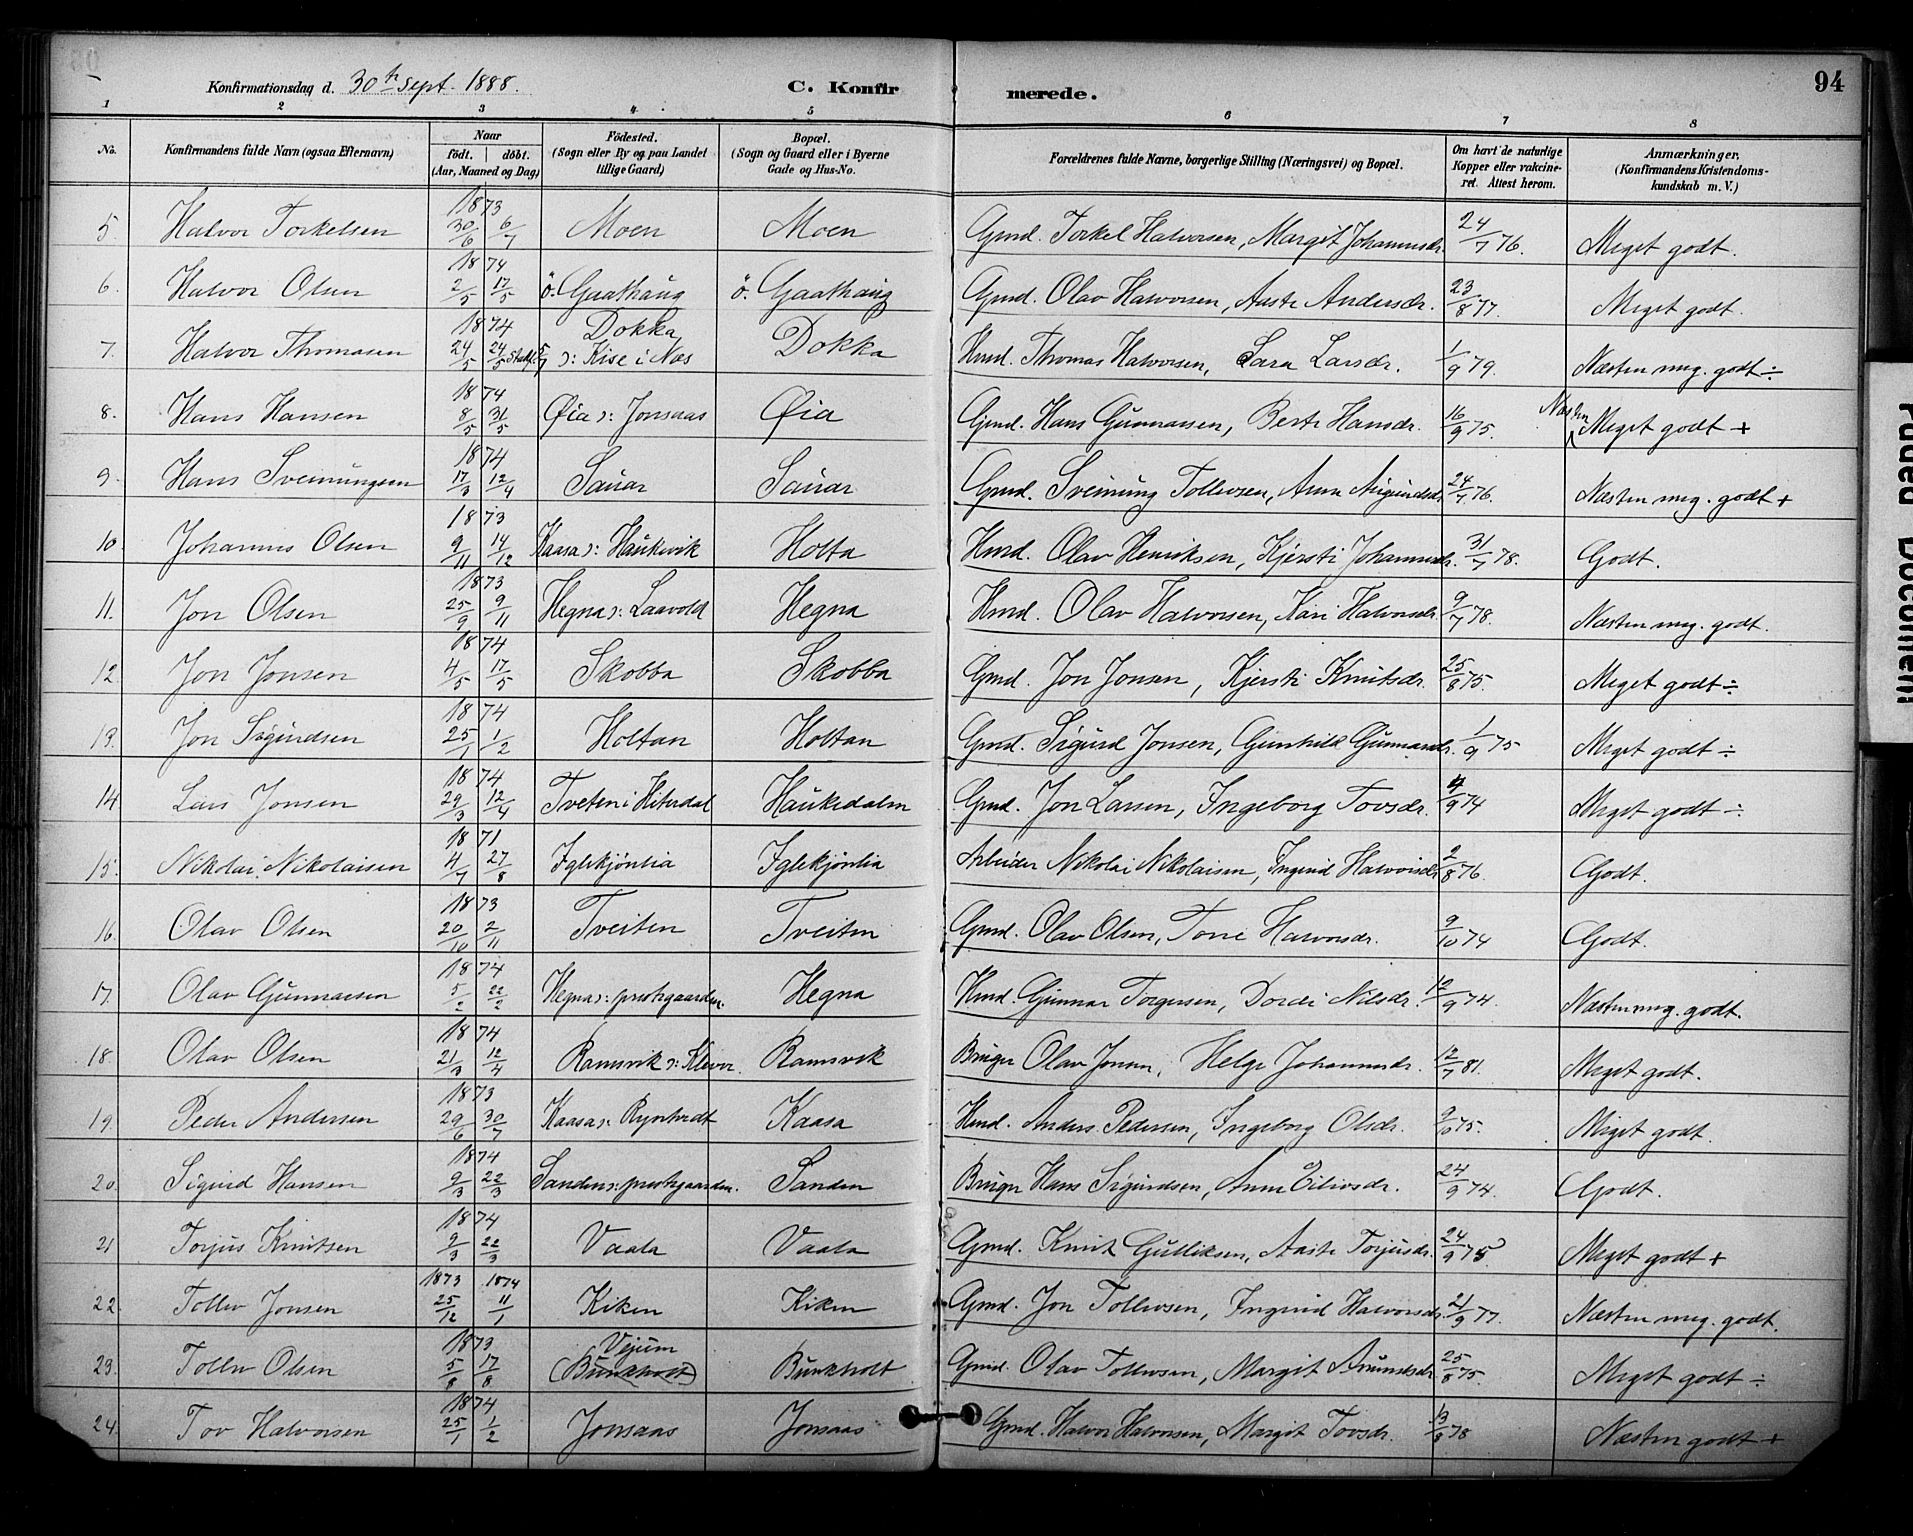 Konfirmationsdag d. 30th Sept. 1888. C. Konfirmerede. 94
1 2 3 4 5 6 7 8
No. Konfirmandens fulde Navn (ogsaa Efternavn) Naar födt. döbt. (Aar, Maaned og Dag) Födested. (Sogn eller By og paa Landet tillige Gaard) Bopæl. (Sogn og Gaard eller i Byerne Gade og Hus-No. Forældrenes fulde Navne, borgerlige Stilling (Næringsvei) og Bopæl. Om havt de naturlige Kopper eller vakcineret. Attest herom. Anmærkninger. (Konfirmandens Kristendomskundskab m. V.)
5. Halvor Torkelsen 1873 30/6 6/7 Moen Moen Gmd. Torkel Halvorsen, Margit Johannesdr. 24/7 76. Meget godt.
6. Halvor Olsen 1874 2/5 17/5 ö. Gaathaug ö. Gaathaug Gmd. Olav Halvorsen, Aaste Andersdr. 23/8 77. Meget godt.
7. Halvor Thomasen 1874 24/5 24/5 5/7 Dokka ɔ: Kise i Næs Dokka Hmd. Thomas Halvorsen, Sara Larsdr. 1/9 79. Næsten meg. godt ÷
8. Hans Hansen 1874 8/5 31/5 Øia ɔ: Jonsaas Øia Gmd. Hans Gunnarsen, Berte Hansdr. 16/9 75. Næsten Meget godt +
9. Hans Sveinungsen 1874 17/3 12/4 Sauar Sauar Gmd. Sveinung Tollevsen, Anne 24/7 76. Næsten meg. godt +
10. Johannes Olsen 1873 9/11 14/12 Kaasa ɔ: Haukvik Holta Hmd. Olav Henriksen, Kjersti Johannesdr. 31/7 78. Godt.
11. Jon Olsen 1873 25/9 9/11 Hegna ɔ: Laavold Hegna Hmd. Olav Halvorsen, Kari Halvorsdr. 9/7 78. Næsten meg. godt.
12. Jon Jonsen 1874 4/5 17/5 Skobba Skobba Gmd. Jon Jonsen, Kjersti Knutsdr. 25/8 75. Meget godt ÷
13. Jon Sigurdsen 1874 25/1 1/2 Holtan Holtan Gmd. Sigurd Jonsen, Gunhild Gunnarsdr. 1/9 75 Meget godt ÷
14 Lars Jonsen 1874 29/3 12/4 Tveten i Hiterdal Haukedalen Gmd. Jon Larsen, Ingeborg Tovsdr. 4/9 74 Meget godt ÷
15. Nikolai Nikolaisen 1871 4/7 27/8 Iglekjønlia Iglekjønlia Arbeider Nikolai Nikolaisen, Ingerid Halvorsdr. 2/8 76. Godt.
16. Olav Olsen 1873 20/10 2/11 Tveiten Tveiten Gmd. Olav Olsen, Tone Halvorsdr. 9/10 74 Godt.
17. Olav Gunnarsen 1874 5/2 22/2 Hegna ɔ: prestegaarden. Hegna Hmd. Gunnar Torgersen, Dordi Nilsdr. 12/9 74. Næsten meg. godt.
18. Olav Olsen 1874 21/3 12/4 Ramsvik ɔ: Klevar. Ramsvik Bruger Olav Jonsen, Helge Johannesdr. 12/7 81. Meget godt.
19. Peder Andersen 1873 29/6 30/7 Kaasa ɔ: Kaasa Hmd. Anders Pedersen, Ingeborg Olsdr. 9/10 75. Meget godt.
20. Sigurd Hansen 1874 9/3 22/3 Sanden ɔ: prestegaarden. Sanden Bruger Hans Sigurdsen, Anne Eilivsdr. 24/9 74. Godt.
21 Torjus Knutsen 1874 9/3 22/3 Vaala Vaala Gmd. Knut Gulliksen, Aaste Torjusdr. 24/9 75 Meget godt +
22. Tollev Jonsen 1873 1874 25/12 11/1 Kiken Kiken Gmd. Jon Tollevsen, Ingerid Halvorsdr. 21/9 77. Næsten meg. godt.
23. Tollev Olsen 1873 5/8 17/8 Vejum (Bunkholt) Bunkholt Gmd. Olav Tollevsen, Margit Amundsdr. 25/8 75. Meget godt ÷
24. Tov Halvorsen 1874 25/1 1/2 Jonsaas Jonsaas Gmd. Halvor Halvorsen, Margit Tovsdr. 13/8 78 Næsten godt +